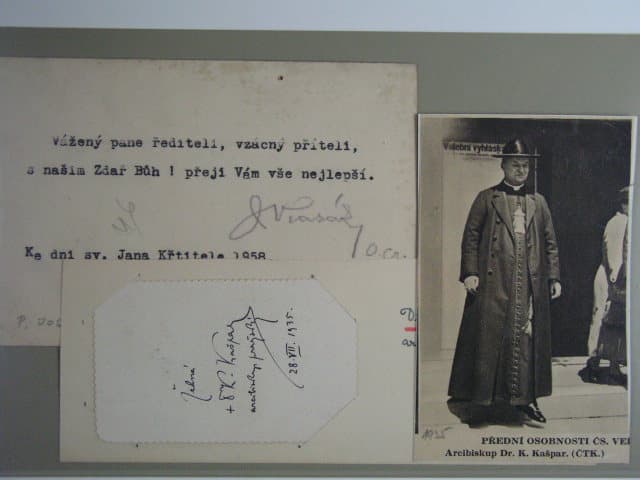 Vážený pane řediteli, vzácný příteli,
s naším Zdař Bůh ! přeji Vám vše nejlepší.
46
O.cr.
Ke dni sv. Jana Křtitele 1958
+ Dr. K. Kašpar
arcibiskup pražský
28.VII.1935.
Volební vyhláška
1935
PŘEDNÍ OSOBNOSTI ČS. VEŘ
Arcibiskup Dr. K. Kašpar. (ČTK.)